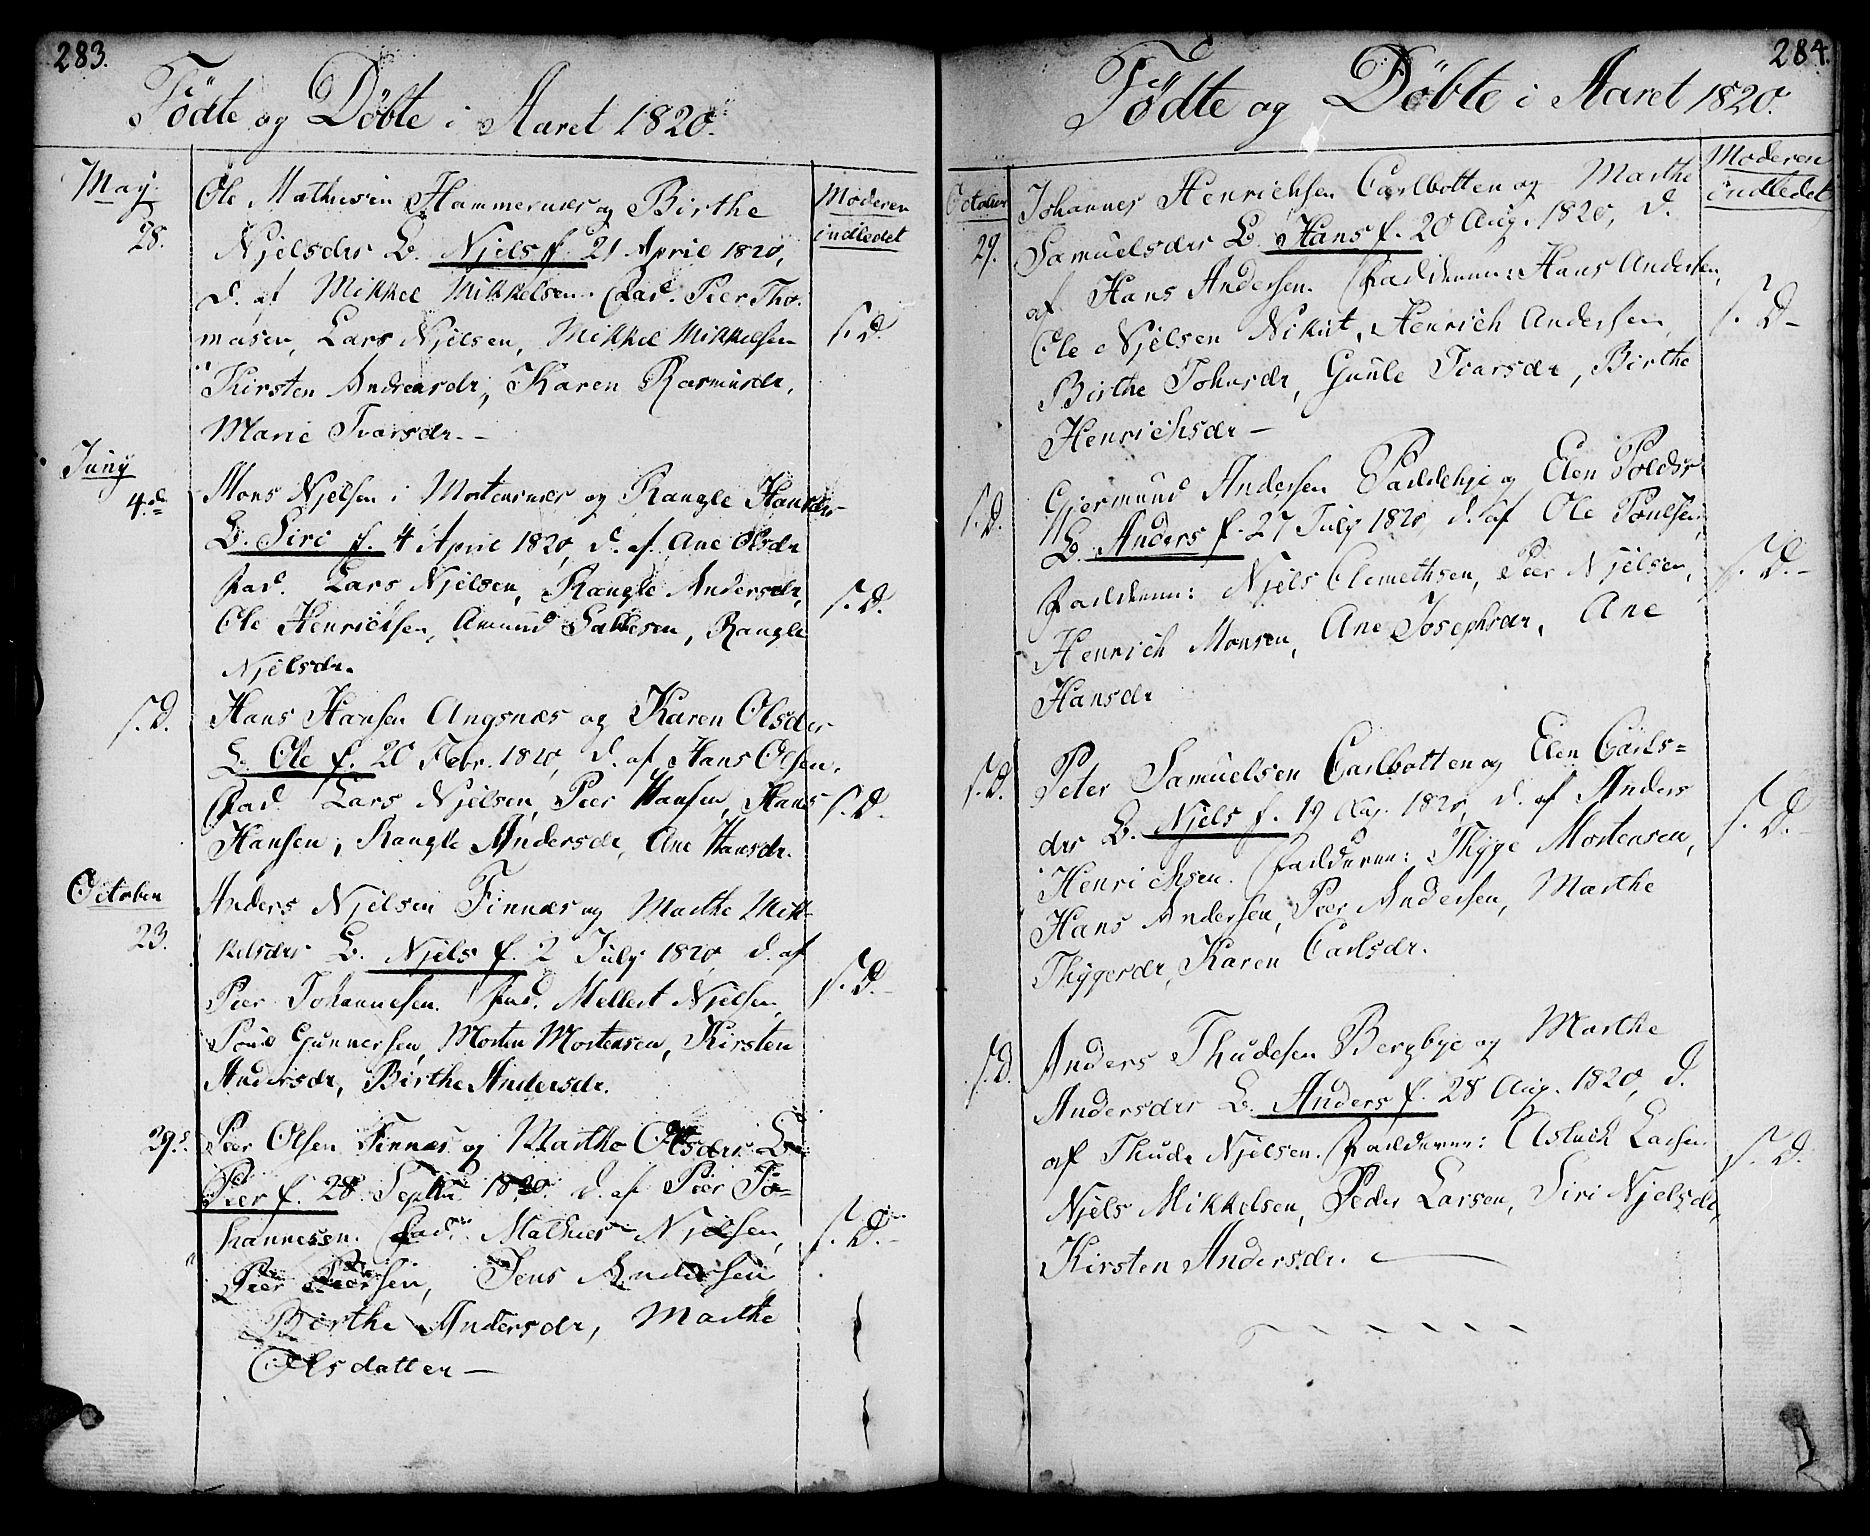 283.
Födte og Döbte i Aaret 1820.
May
28.
Moderen
indledet
Ole Mathiesen Hammernæs og Birthe
Njelsdr B. Njels f. 21 April 1820,
d. af Mikkel Mikkelsen. Fad. Peer Tho-
masen, Lars Njelsen, Mikkel Mikkelsen
Kirsten Andreasdr, Karen Rasmusdr,
Marie Ivarsdr. –
s. d.
Juny
4.de
Mons Njelsen i Mortensnæs og Rangle Hansdr
B. Siri f. 4 April 1820, d. af Ane Olsdr
Fad. Lars Njelsen, Rangle Andersdr,
Ole Henrichsen, Amund Sallesen, Rangle
Njelsdr.
s. d.
s. d.
Hans Hansen Angsnæs og Karen Olsdr
B. Ole f. 20 Febr. 1820, d. af Hans Olsen.
Fad. Lars Njelsen, Peer Hansen, Hans
Hansen, Rangle Andersdr, Ane Hansdr.
s. d.
October
23.
Anders Njelsen Finnæs og Marthe Mik-
kelsdr B. Njels f. 2 July 1820, d. af
Peer Johannesen. Fad. Mellert Njelsen,
Poul Gunnersen, Morten Mortensen, Kirsten
Andersdr, Birthe Andersdr.
s. d. –
29.
Peer Olsen Finnæs og Marthe Olsdr B.
Peer f. 28 Septbr 1820. d. af Peer Jo=
hannesen. Fad. Mathies Njelsen,
Peer Peersen, Jens Andersen
Birthe Andersdr, Marthe
Olsdatter –
s. d. –
284.
Födte og Döbte i Aaret 1820.
October
29.
Moderen
indledet
Johannes Henrichsen Carlbotten og Marthe
Samuelsdr B. Hans f. 20 Aug. 1820, d.
af Hans Andersen. Fadderne: Hans Andersen,
Ole Njelsen Nikut, Henrich Andersen,
Birthe Johnsdr, Gunle Ivarsdr, Birthe
Henrichsdr –
s. d. –
s. d.
Gjermund Andersen Paddebye og Elen Polsdr
B. Anders f. 27 July 1820, d. af Ole Poulsen,
Fadderne: Njels Clemethsen, Peer Njelsen,
Henrich Monsen, Ane Josephsdr, Ane
Hansdr
s. d. –
s. d.
Peter Samuelsen Carlbotten og Elen Carls=
dr B. Njels f. 19 Aug. 1820, d. af Anders
Henrichsen. Fadderne: Thyge Mortensen,
Hans Andersen, Peer Andersen, Marthe
Thygesdr, Karen Carlsdr.
s. d. –
s. d.
Anders Thudesen Bergbye og Marthe
Andersdr B. Anders f. 28 Aug. 1820, d.
af Thude Njelsen. Fadderne: Aslach Larsen
Njels Mikkelsen, Peder Larsen, Siri Njelsdr,
Kirsten Andersdr.
s. d.